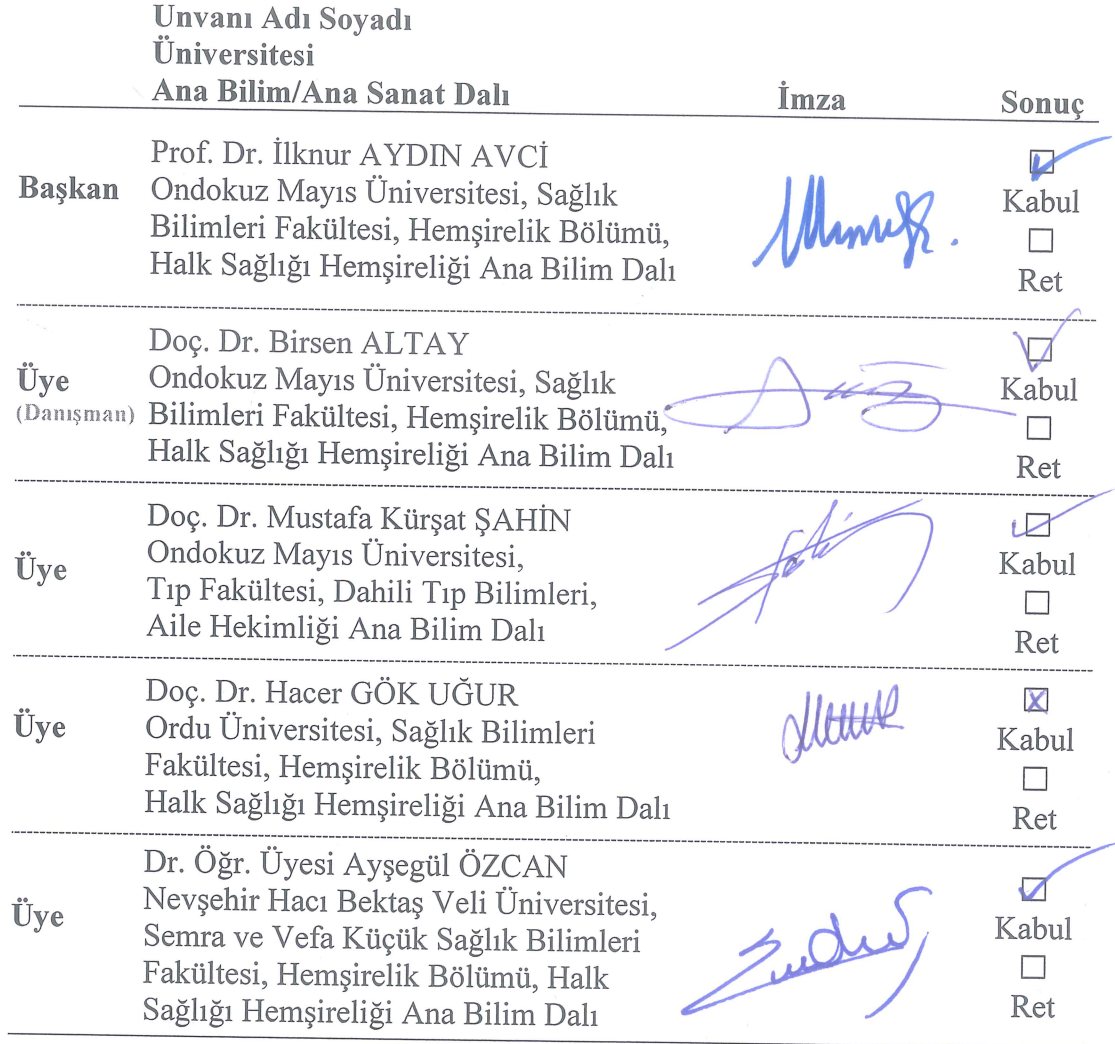 Unvanı Adı Soyadı
Üniversitesi
Ana Bilim/Ana Sanat Dalı İmza Sonuç
Prof. Dr. İlknur AYDIN AVCİ
Başkan Ondokuz Mayıs Üniversitesi, Sağlık Kabul
Bilimleri Fakültesi, Hemşirelik Bölümü,
Halk Sağlığı Hemşireliği Ana Bilim Dalı Ret
Doç. Dr. Birsen ALTAY
Üye Ondokuz Mayıs Üniversitesi, Sağlık Kabul
(Danışman) Bilimleri Fakültesi, Hemşirelik Bölümü,
Halk Sağlığı Hemşireliği Ana Bilim Dalı Ret
Doç. Dr. Mustafa Kürşat ŞAHİN
Üye Ondokuz Mayıs Üniversitesi, Kabul
Tıp Fakültesi, Dahili Tıp Bilimleri,
Aile Hekimliği Ana Bilim Dalı Ret
Doç. Dr. Hacer GÖK UĞUR
Üye Ordu Üniversitesi, Sağlık Bilimleri Kabul
Fakültesi, Hemşirelik Bölümü,
Halk Sağlığı Hemşireliği Ana Bilim Dalı Ret
Dr. Öğr. Üyesi Ayşegül ÖZCAN
Üye Nevşehir Hacı Bektaş Veli Üniversitesi,
Semra ve Vefa Küçük Sağlık Bilimleri Kabul
Fakültesi, Hemşirelik Bölümü, Halk
Sağlığı Hemşireliği Ana Bilim Dalı Ret